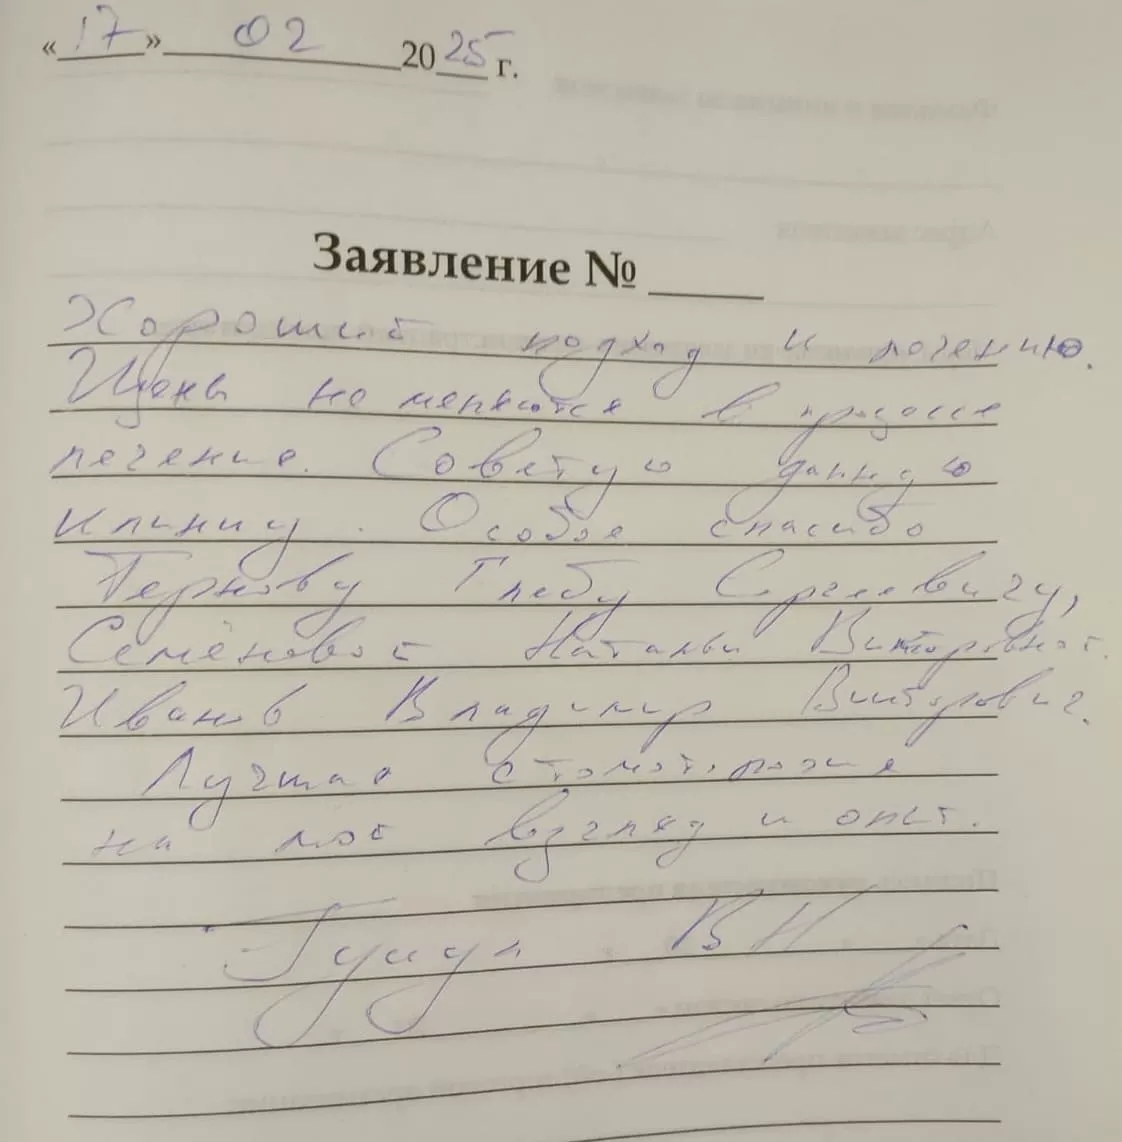 «17» 02 2025 г.
Заявление № ____
Хороший подход к лечению.
Цены не меняются в процессе
лечение. Советую данную
клинику. Особое спасибо
Тернову Глебу Сергеевичу,
Семёновой Натальи Викторовной.
Иванов Владимир Викторович.
Лучшая стоматология
на мой взгляд и опыт.
В Н